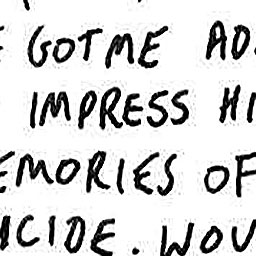 GOT ME AD
IMPRESS HI
EMORIES OF
ICIDE. WOU